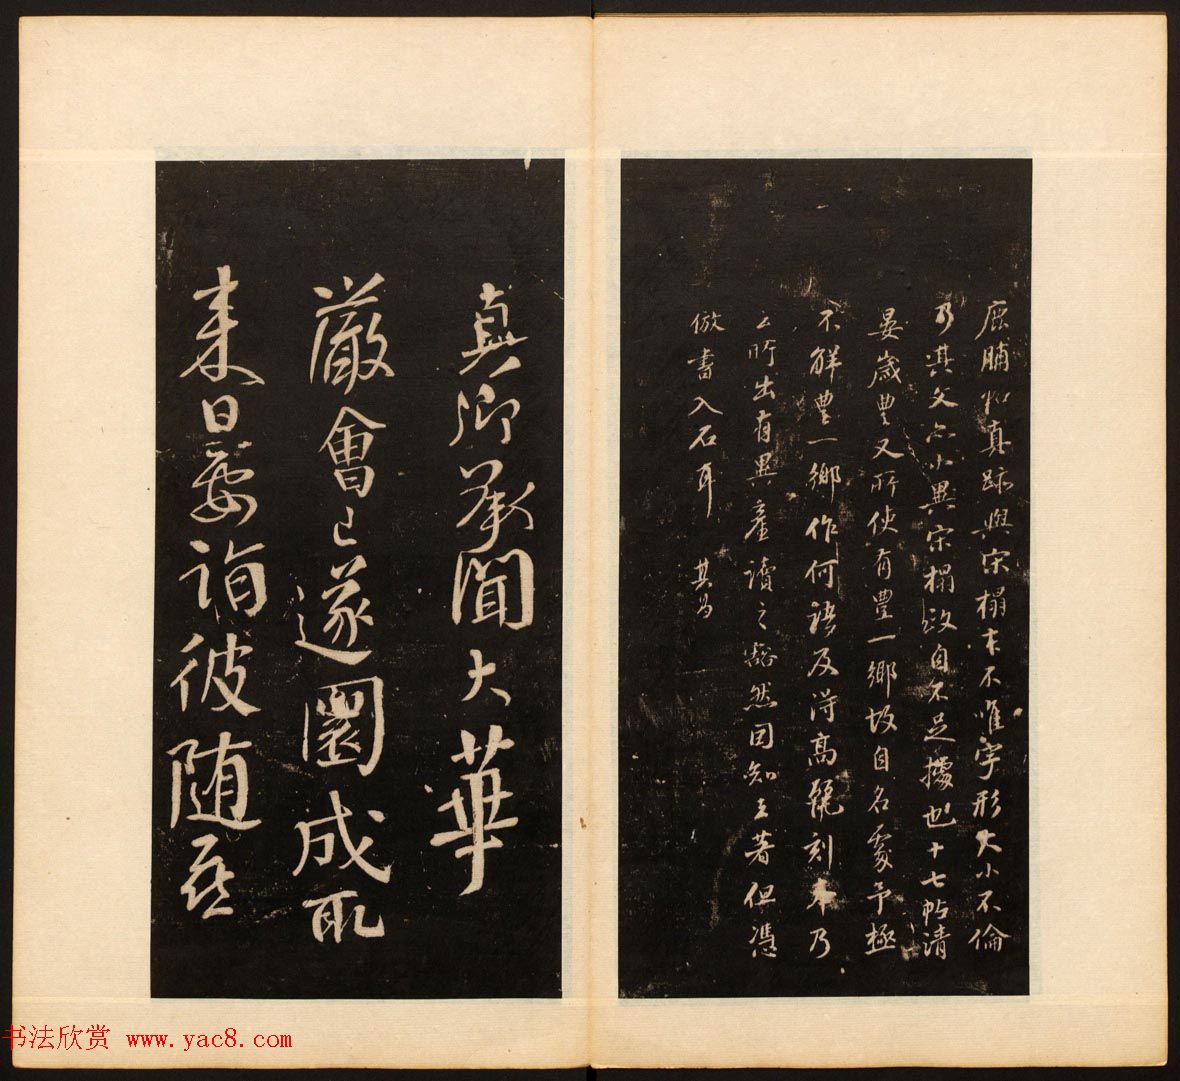 鹿脯帖真跡與宋榻本不唯字形大小不倫
乃其文亦小異宋榻政自不足據也十七帖清
晏歲豐又所使有豐一鄉故自名處予極
不解豐一鄉作何語及得高麗刻本乃
云所出有異產讀之豁然因知王著但憑
倣書入石耳 其昌
真卿承聞大華
嚴會已遂圓成取
来日要詣彼随喜
书法欣赏 www.yac8.com